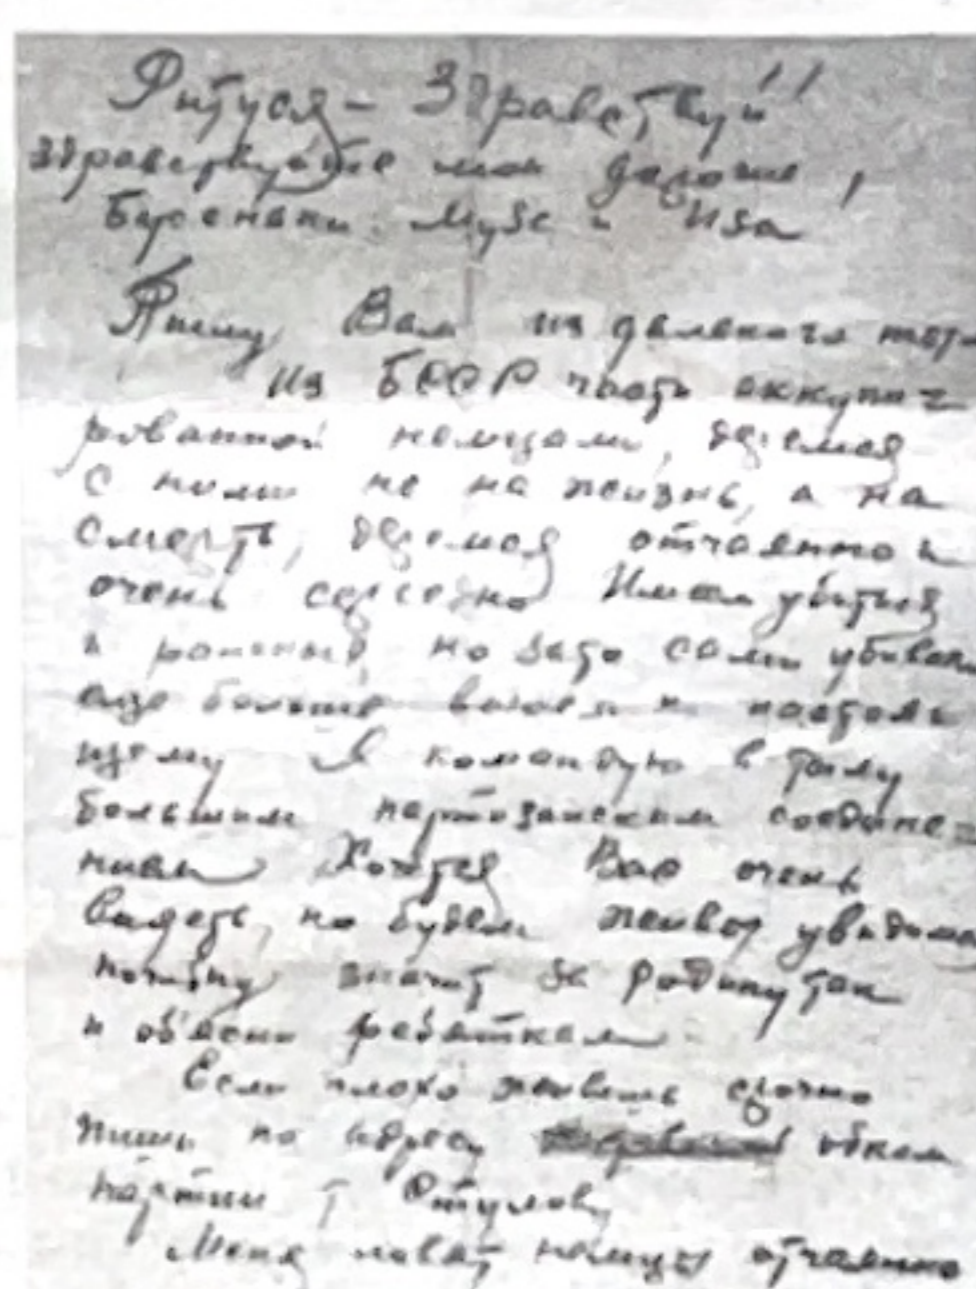 Ритуся – Здравствуй!!
здравствуйте мои дорогие,
Муза и Иза
Пишу Вам из далекого
из БССР часть оккупи-
рованной немцами, деремся
с ними не на жизнь, а на
смерть, деремся отчаянно и
очень серьезно Имеем убитых
и раненых, но зато сами убиваем
еще больше воюем по настоя
щему Я командую в тылу
большим партизанским соедине-
нием Хочется Вас очень
видеть, но будем живы увидимся
погибну значит за Родину так
и об'ясни ребяткам
Если плохо живешь срочно
пиши по адресу обком
партии т
Меня ловят немцы отчаянно